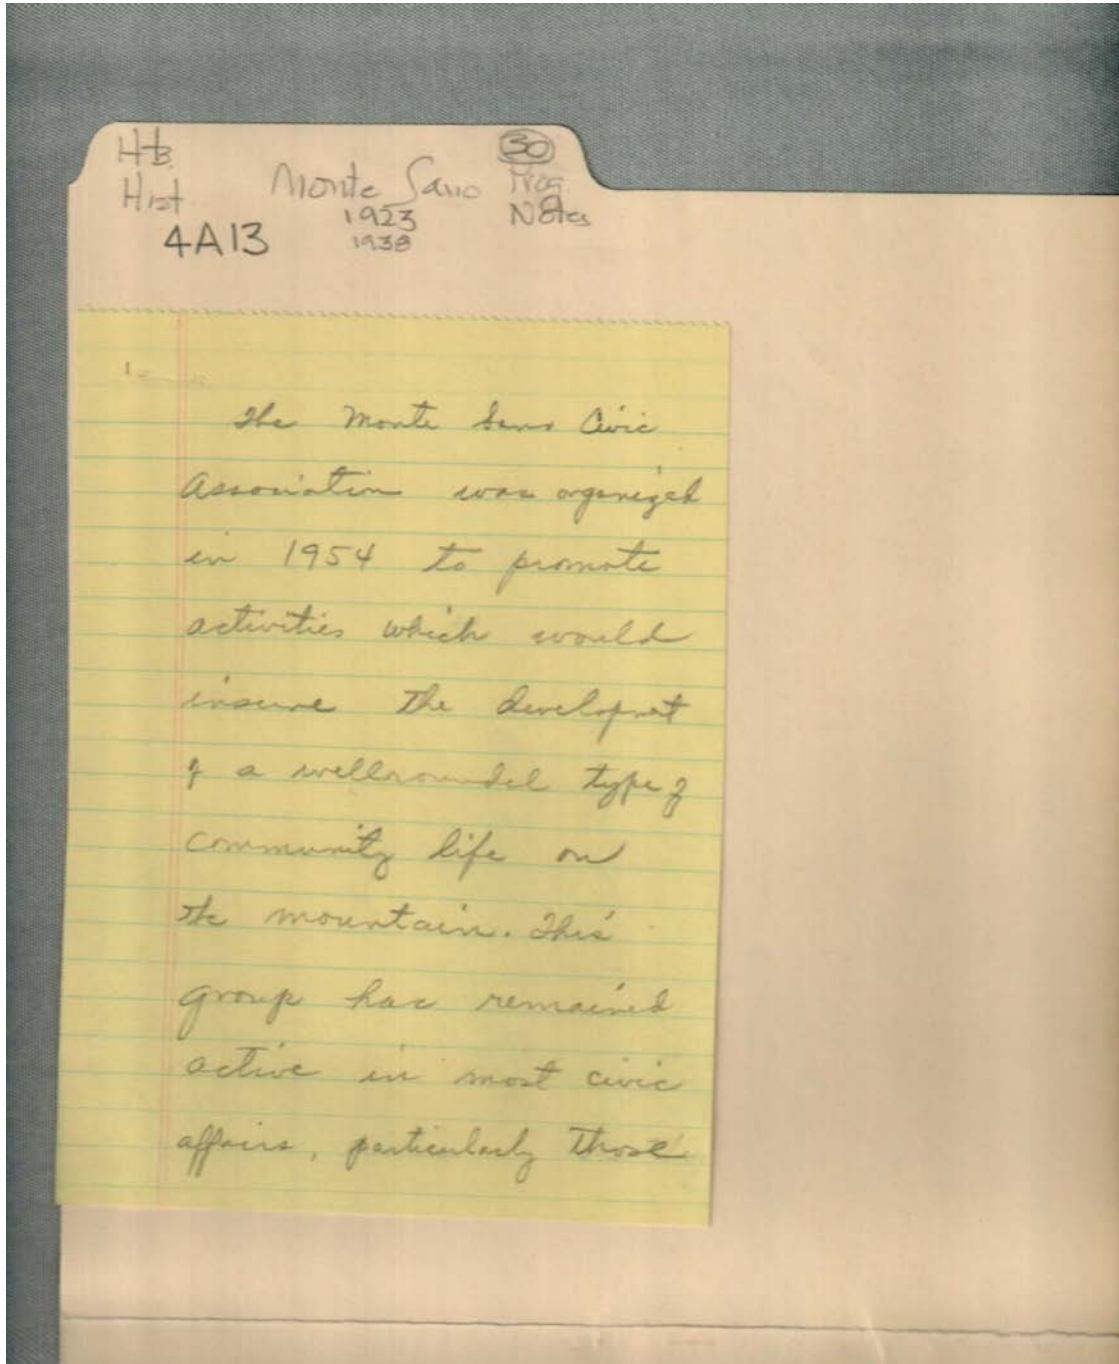 Htb.
Hist
4A13
Monte Sano
1923
1938
30
Prog
Notes
The Monte Sano Civic
Association was organized
in 1954 to promote
activities which would
insure the development
of a wellrounded type of
community life on
the mountain. This
group has remained
active in most civic
affairs, particularly those